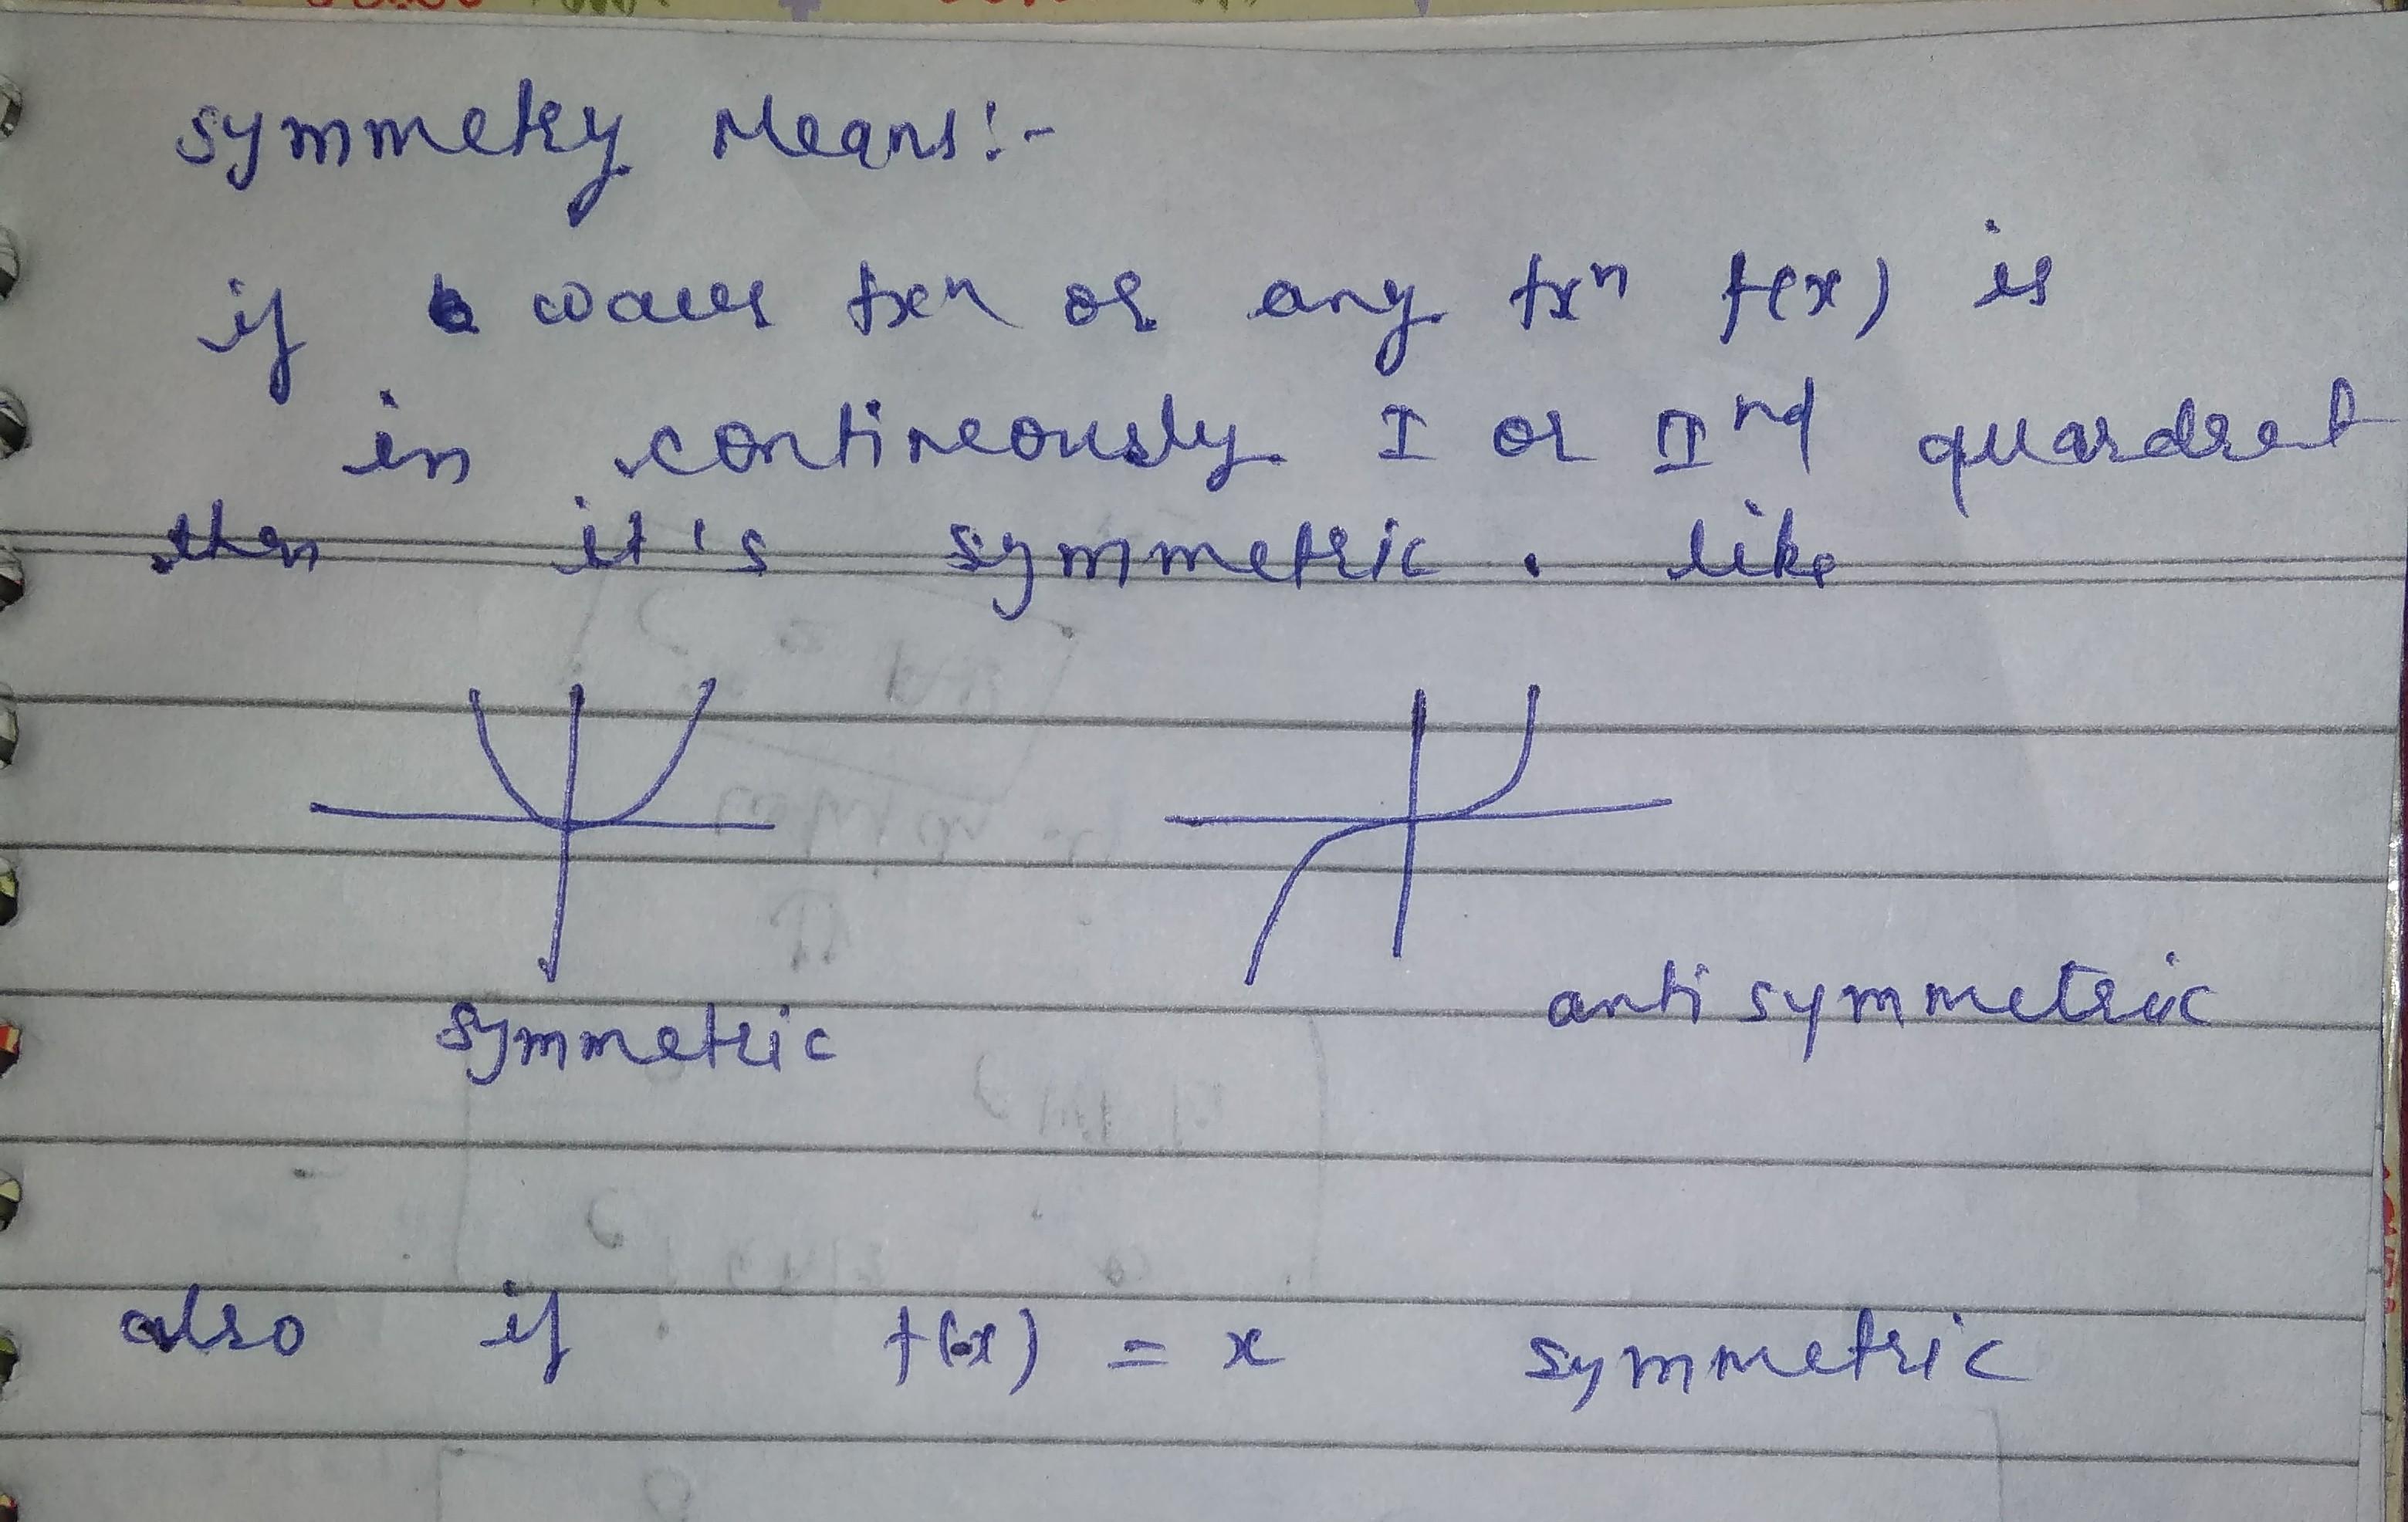 symmetry Means:-
if wave fxn or any fxn f(x) is
in contineously I or IInd quardrat
then it's symmetric. like
symmetric
antisymmetric
also if f(-x) = x symmetric